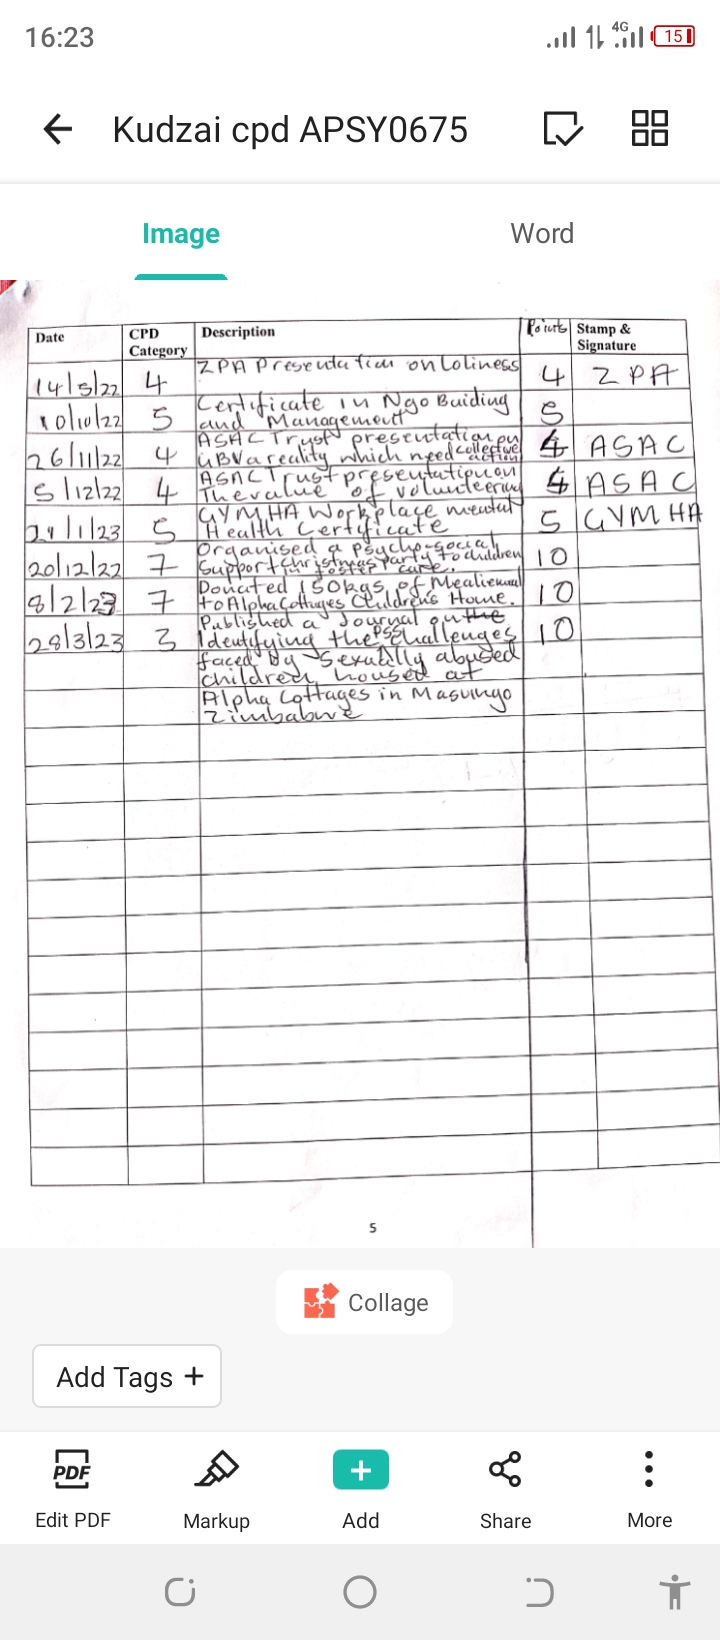 16:23
4G
15
Kudzai cpd APSY0675
Image
Word
Date
CPD Category
Description
Points
Stamp & Signature
14/5/22 4 ZPA Presentation on Loliness 4 ZPA
10/10/22 5 Certificate in Ngo Buiding
and Management 5
26/11/22 4 ASAC Trust presentation on
GBV a reality which need collective action 4 ASAC
5/12/22 4 ASAC Trust presentation on
The value of volunteering 4 ASAC
/1/23 5 GYMHA Workplace mental
Health Certificate 5 GYMHA
20/12/22 7 Organised a psycho-social
Support Christmas Party to children
in foster care. 10
8/2/23 7 Donated 150kgs of Mealiemeal
to Alpha Cottages Children's Home. 10
28/3/23 3 Published a Journal on the
Identifying the PSS challenges 10
faced by sexually abused
children housed at
Alpha Cottages in Masvingo
Zimbabwe
5
Collage
Add Tags +
PDF
Edit PDF
Markup
Add
Share
More